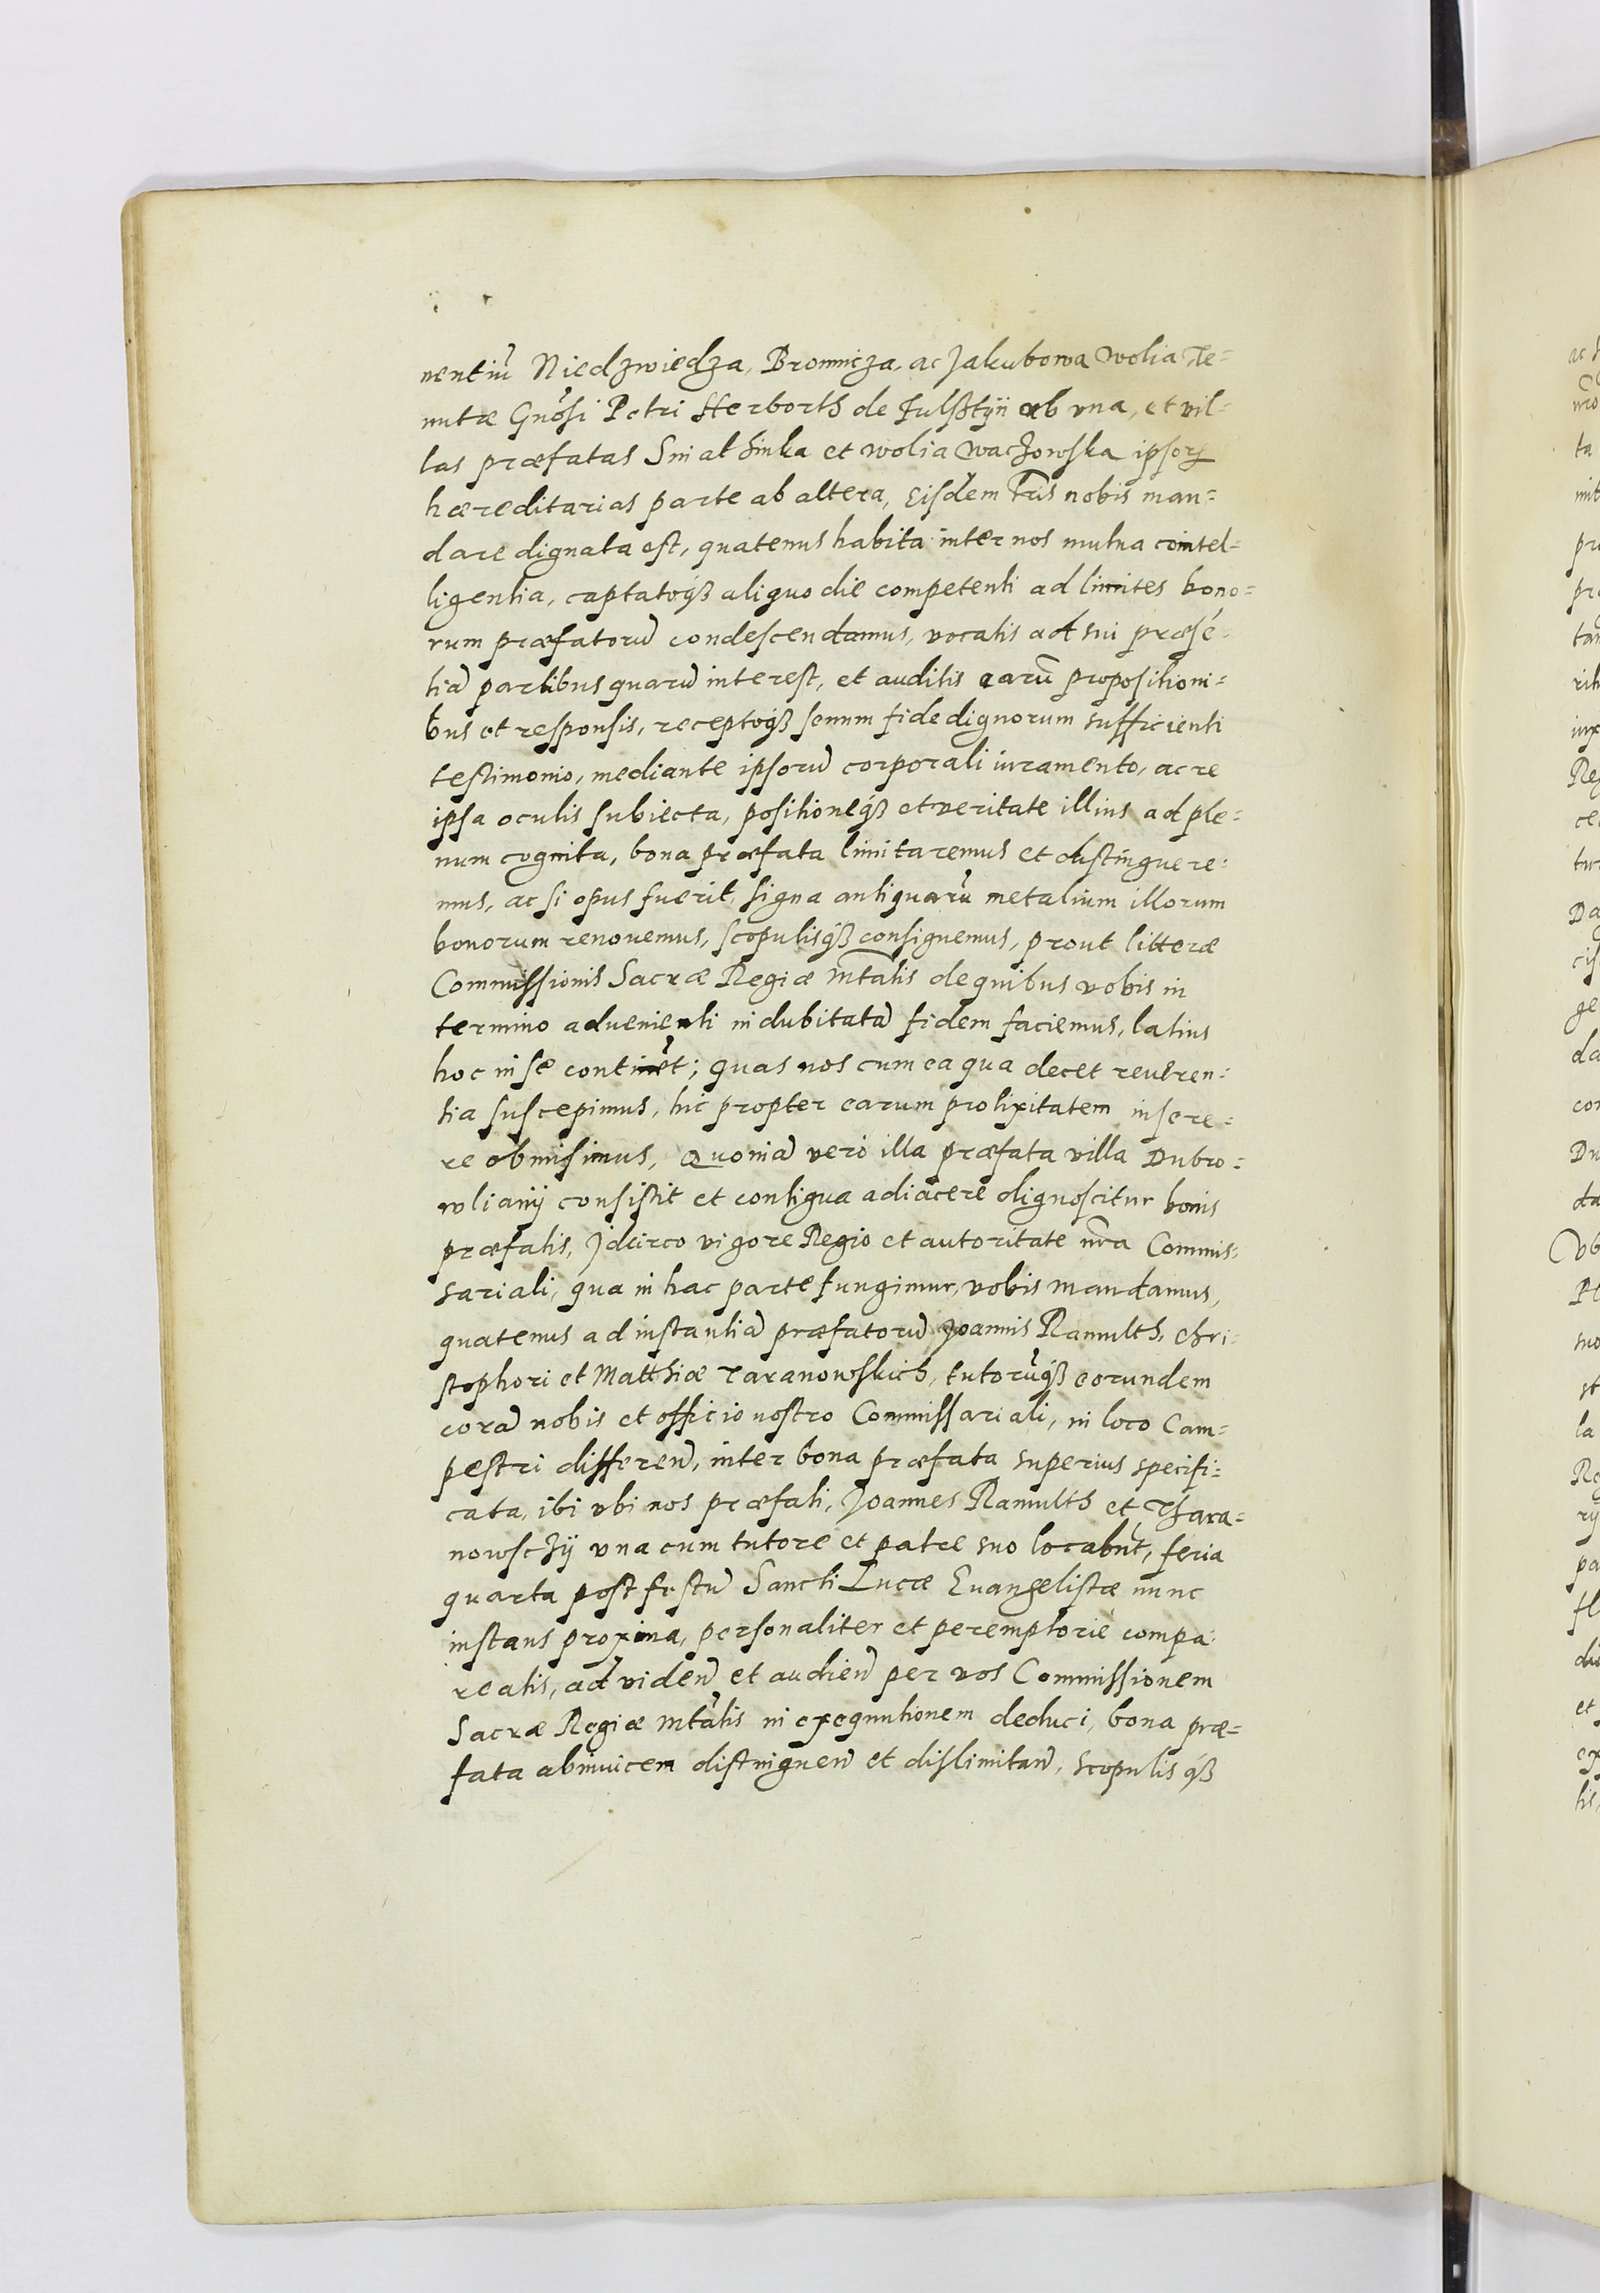 nentiũ Niedzwiedza, Bronnicza, ac Jakubowa wolia Te=
nutæ Gnõsi Petri Herborth de Fulsstÿn ab vna, et vil=
las præfatas Snialhinka et wolia waczowska ipsorꝝ
hæreditarias parte ab altera, eisdem lr̃is nobis man=
dare dignata est, quatenus habita inter nos mutua cointel=
ligentia, captatoqꝫ aliquo die competenti ad limites bono=
rum præfatorũ condescendamus, vocatis ad sui præsẽ=
tiã partibus quarũ interest, et auditis earũ propositioni=
bus et responsis, receptoqꝫ senum fide dignorum sufficienti
testimonio, mediante ipsorũ corporali iuramento, ac re
ipsa oculis subiecta, positioneqꝫ et veritate illius ad ple=
num cognita, bona præfata limitaremus et distinguere=
mus, ac si opus fuerit, signa antiquarũ metalium illorum
bonorum renouemus, scopulisqꝫ consignemus, prout litteræ
Commissionis Sacræ Regiæ Mtãlis de quibus vobis in
termino aduenienti indubitatã fidem faciemus, latius
hoc in se continẽt; quas nos cum ea qua decet reueren=
tia suscepimus, hic propter earum prolixitatem insere=
re obmisimus, Quoniã vero illa præfata villa Dubro=
wlianÿ consistit et contigua adiacere dignoscitur bonis
præfatis, Jdcirco vigore Regio et autoritate nr̃a Commis=
sariali, qua in hac parte fungimur, vobis mandamus,
quatenus ad instantiã præfatorũ Joannis Ramulth, Chri=
stophori et Matthiæ Taranowskich, tutorũqꝫ eorundem
corã nobis et officio nostro Commissariali, in loco Cam=
pestri differeñ, inter bona præfata superius specifi=
cata, ibi vbi nos præfati, Joannes Ramulth et Thara=
nowsczÿ vna cum tutore et patre suo locabñt, feria
quarta post festũ Sancti Lucæ Euangelistæ nunc
instans proxima, personaliter et peremptorie compa=
reatis, ad videñ et audieñ per vos Commissionem
Sacræ Regiæ Mtãlis in exequutionem deduci, bona præ=
fata abinuicem distingueñ et dislimitañ, scopulisqꝫ